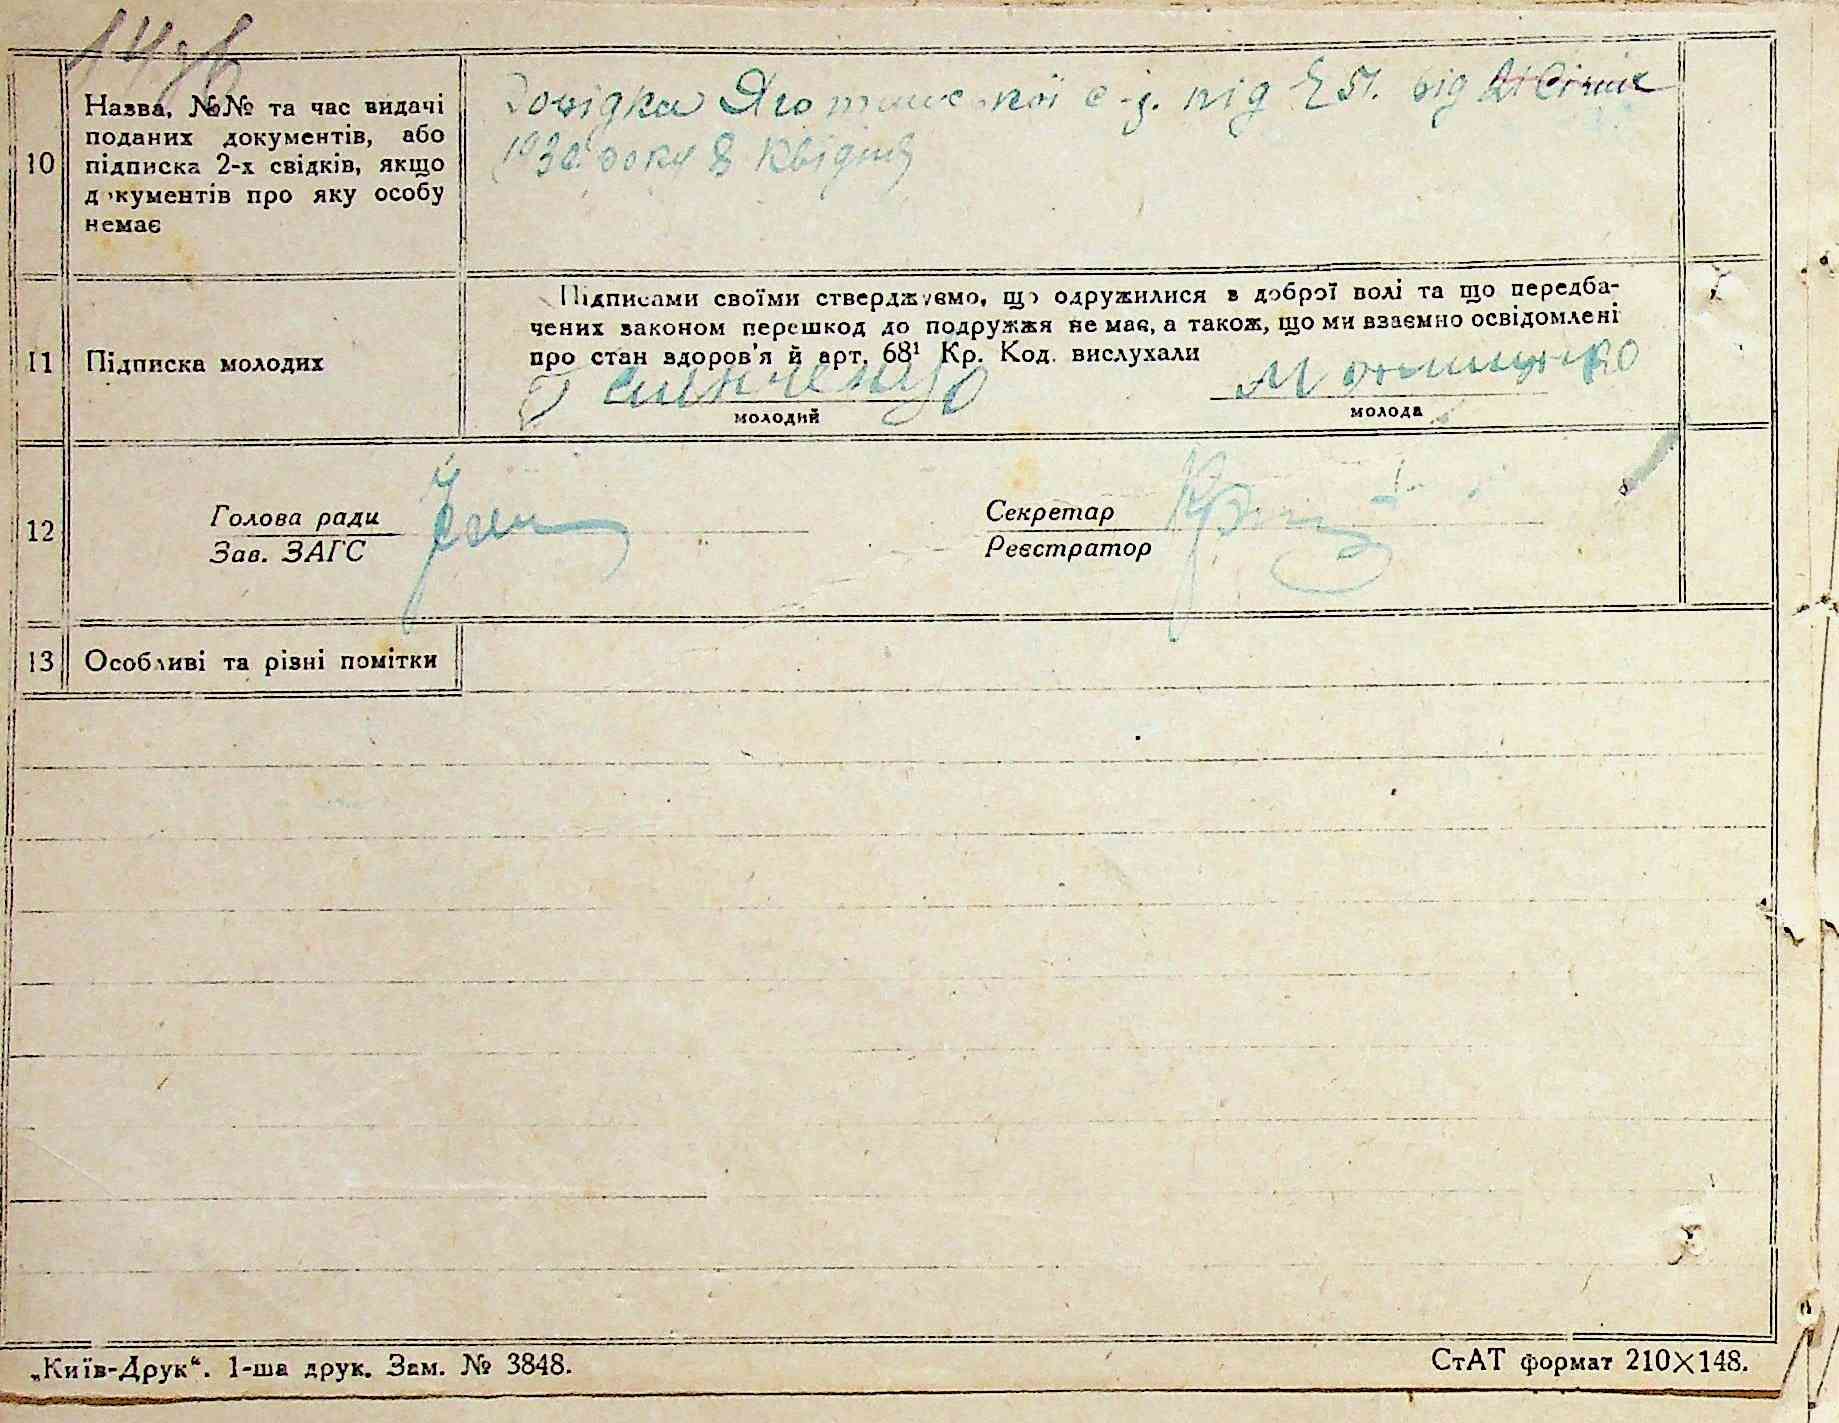 10
Назва, №№ та час видачі
поданих документів, або
підписка 2-х свідків, якщо
документів про яку особу
немає
Довідка с-р. від
193 року 8 квідня
11
Підписка молодих
Підписами своїми стверджуємо, що одружилися з доброї волі та що передба-
чених законом перешкод до подружжя не має, а також, що ми взаємно освідомлені
про стан здоров'я й арт. 68¹ Кр. Код. вислухали
молодий
молода
12
Голова ради
Зав. ЗАГС
Секретар
Реєстратор
13
Особливі та різні помітки
„Київ-Друк“. 1-ша друк. Зам. № 3848.
СтАТ формат 210×148.